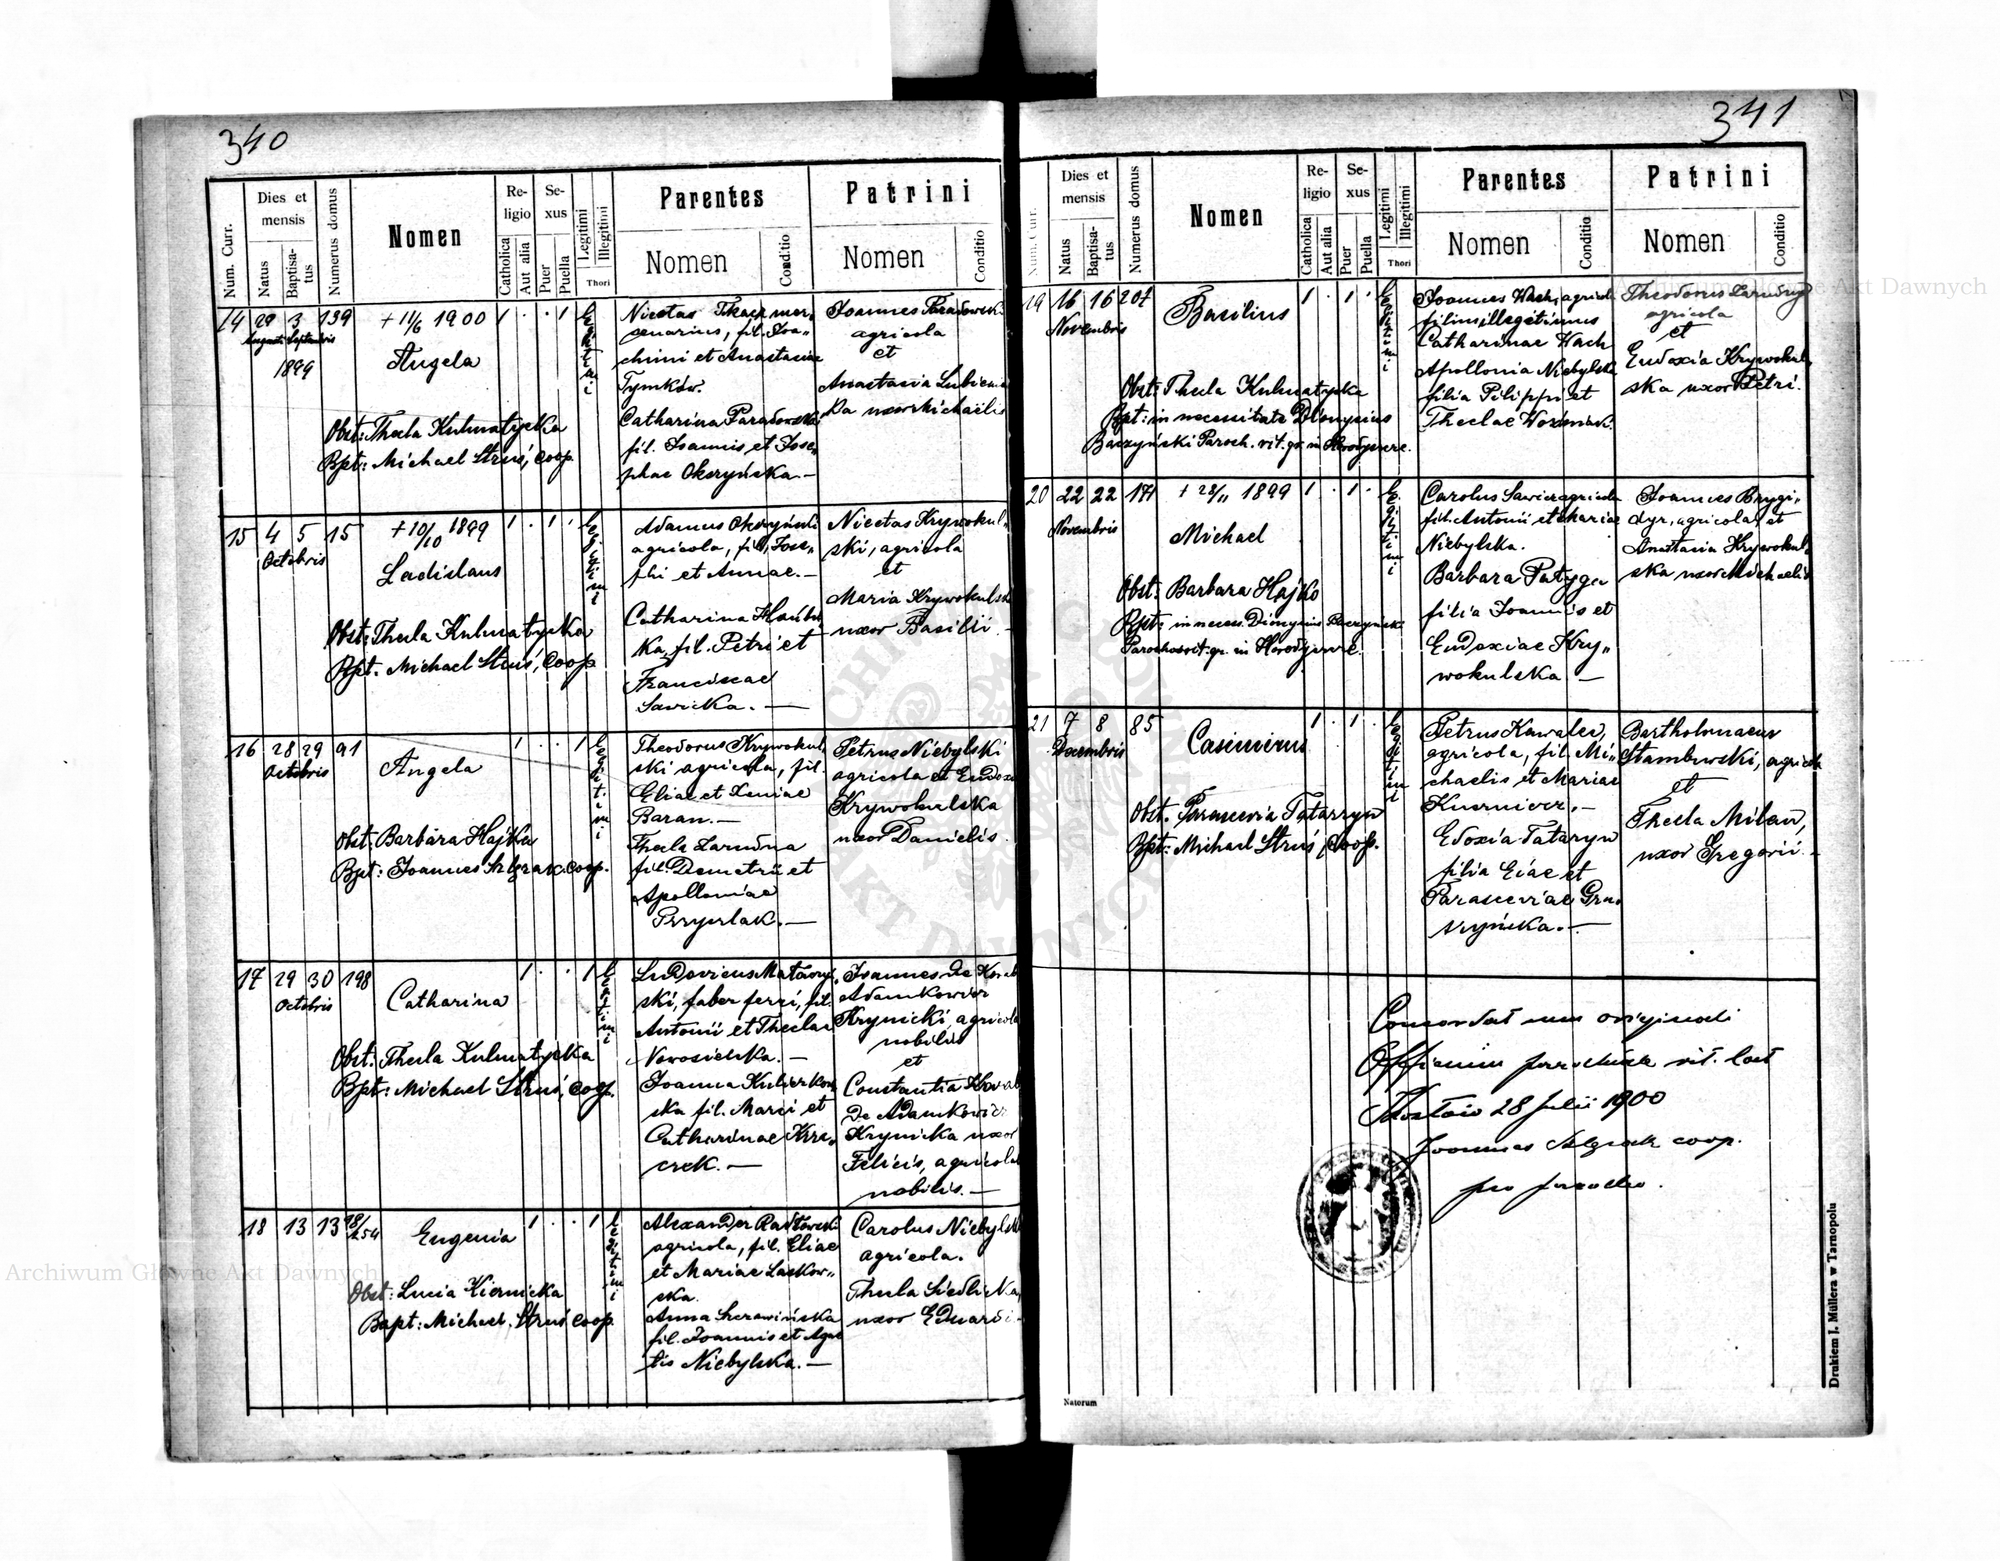 340
Num. Curr.
Dies et mensis
Natus
Baptisatus
Numerus domus
Nomen
Religio
Catholica
Aut alia
Sexus
Puer
Puella
Legitimi
Illegitimi
Thori
Parentes
Nomen
Conditio
Patrini
Nomen
Conditio
14 29 3 139
Augusti Septembris
1899
+ 11/6 1900
Angela
Obst: Thecla Kulmatycka
Bpt: Michael Struś, coop.
1 . . 1
Legitimi
Nicetas Tkacz, mer„
cenarius, fil. Joa„
chimi et Anastasiae
Tymków.
Catharina Paradowska
fil. Joannis et Jose„
phae Okrzyńska.—
Joannes Paradowski
agricola
et
Anastasia Lubieniec
uxor Michaëlis
15 4 5 15
Octobris
+ 10/10 1899
Ladislaus
Obst: Thecla Kulmatycka
Bpt: Michael Struś, coop.
1 . 1 .
Legitimi
Adamus Okrzyński
agricola, fil. Jose„
phi et Annae.—
Catharina
fil. Petri et
Franciscae
Sawicka.—
Nicetas Krywokul„
ski, agricola
et
Maria Krywokulska
uxor Basilii.—
16 28 29 91
Octobris
Angela
Obst: Barbara Hajko
Bpt: Joannes coop.
1 . . 1
Legitimi
Theodorus Krywokul„
ski agricola, fil.
Eliae et Xeniae
Baran.—
Thecla Zarudna
fil. Demetrii et
Apolloniae
Przyszlak.—
Petrus Niebylski
agricola et Eudoxia
Krywokulska
uxor Danielis.
17 29 30 198
Octobris
Catharina
Obst: Thecla Kulmatycka
Bpt: Michael Struś, coop.
1 . . 1
Legitimi
Ludovicus
ski, faber ferri, fil.
Antonii et Theclae
Nowosielska.—
Joanna
ska fil. Marci et
Catharinae
czek.—
Joannes de
Adamkowicz
Krynicki, agricola
nobilis
et
Constantia
de Adamkowicz
Krynicka uxor
Felicis, agricola
nobilis.—
18 13 13 98/254
Eugenia
Obst: Lucia Kiernicka
Bapt: Michael Struś coop.
1 . . 1
Legitimi
Alexander Radłowski
agricola, fil. Eliae
et Mariae Laskow„
ska.
Anna
fil. Joannis et Aga„
tis Niebylska.—
Carolus Niebylski
agricola.
Thecla Siedlicka,
uxor Eduardi.—
341
Num. Curr.
Dies et mensis
Natus
Baptisatus
Numerus domus
Nomen
Religio
Catholica
Aut alia
Sexus
Puer
Puella
Legitimi
Illegitimi
Thori
Parentes
Nomen
Conditio
Patrini
Nomen
Conditio
19 16 16 207
Novembris
Basilius
Obst: Thecla Kulmatycka
Bpt: in necessitate Dionysius
Baczyński Paroch. rit. gr. in Horodyszcze.
1 . 1 .
Legitimi
Joannes Wach, agricola
filius illegitimus
Catharinae Wach
Apollonia Niebylska
filia Philippi et
Theclae Woźniak.
Theodorus Zarudny
agricola
et
Eudoxia Krywokul„
ska uxor Petri.
20 22 22 171
Novembris
+ 28/11 1899
Michael
Obst: Barbara Hajko
Bpt: in necess. Dionysius Baczyński
Parochus rit. gr. in Horodyszcze.
1 . 1 .
Legitimi
Carolus Sawicz agricola
fil. Antonii et Mariae
Niebylska.
Barbara Patyga
filia Joannis et
Eudoxiae Kry„
wokulska —
Joannes Brygi„
dyr, agricola, et
Anastasia Krywokul„
ska uxor Michaelis
21 7 8 85
Decembris
Casimirus
Obst. Parascevia Tataryn
Bpt: Michael Struś, Coop.
1 . 1 .
Legitimi
Petrus Kowalew,
agricola, fil. Mi„
chaelis et Mariae
Eudoxia Tataryn
filia Eliae et
Parasceviae Gru„
szyńska.—
Bartholomaeus
Stamburski, agricola
et
Thecla Milan,
uxor Gregorii.—
Concordat cum originali
Officium parochiale rit. lat.
28 Julii 1900
Joannes coop.
pro parocho.
Natorum
Drukiem J. Müllera w Tarnopolu
Archiwum Główne Akt Dawnych
Archiwum Główne Akt Dawnych
ARCHIWUM GŁÓWNE AKT DAWNYCH